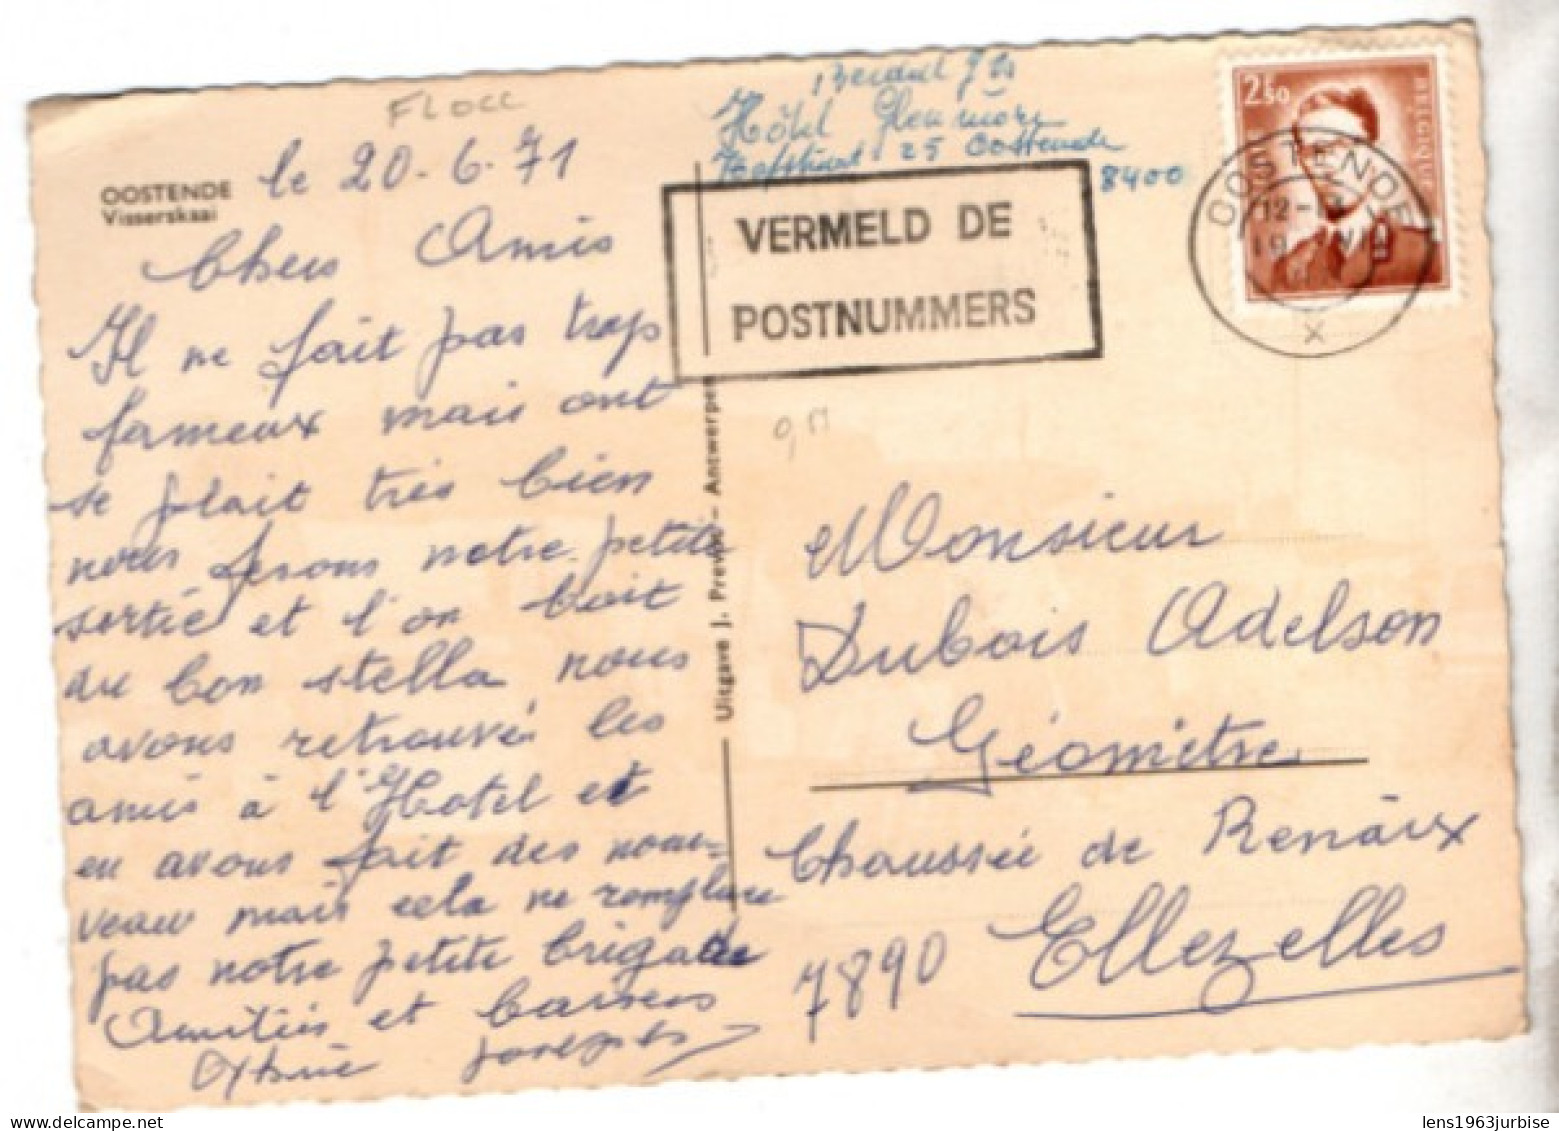 FLOCC
OOSTENDE
Visserskaai
le 20-6-71
Chers Amis
Il ne fait pas trop
fameux mais ont
se plait très bien
nous ferons notre petite
sortie et l'on boit
du bon stella nous
avons retrouvés les
amis à l'Hotel et
en avons fait des nou=
veau mais cela ne remplace
pas notre petite brigade
Amitiés et baisers
Uitgave J. Prevot - Antwerpen
Hôtel Glenmore
25 Oostende
8400
VERMELD DE
POSTNUMMERS
2F50
BELGIQUE
OOSTENDE
12-
19
X
Monsieur
Dubois Adelson
Géomètre
Chaussée de Renaix
7890 Ellezelles
lens1963jurbise